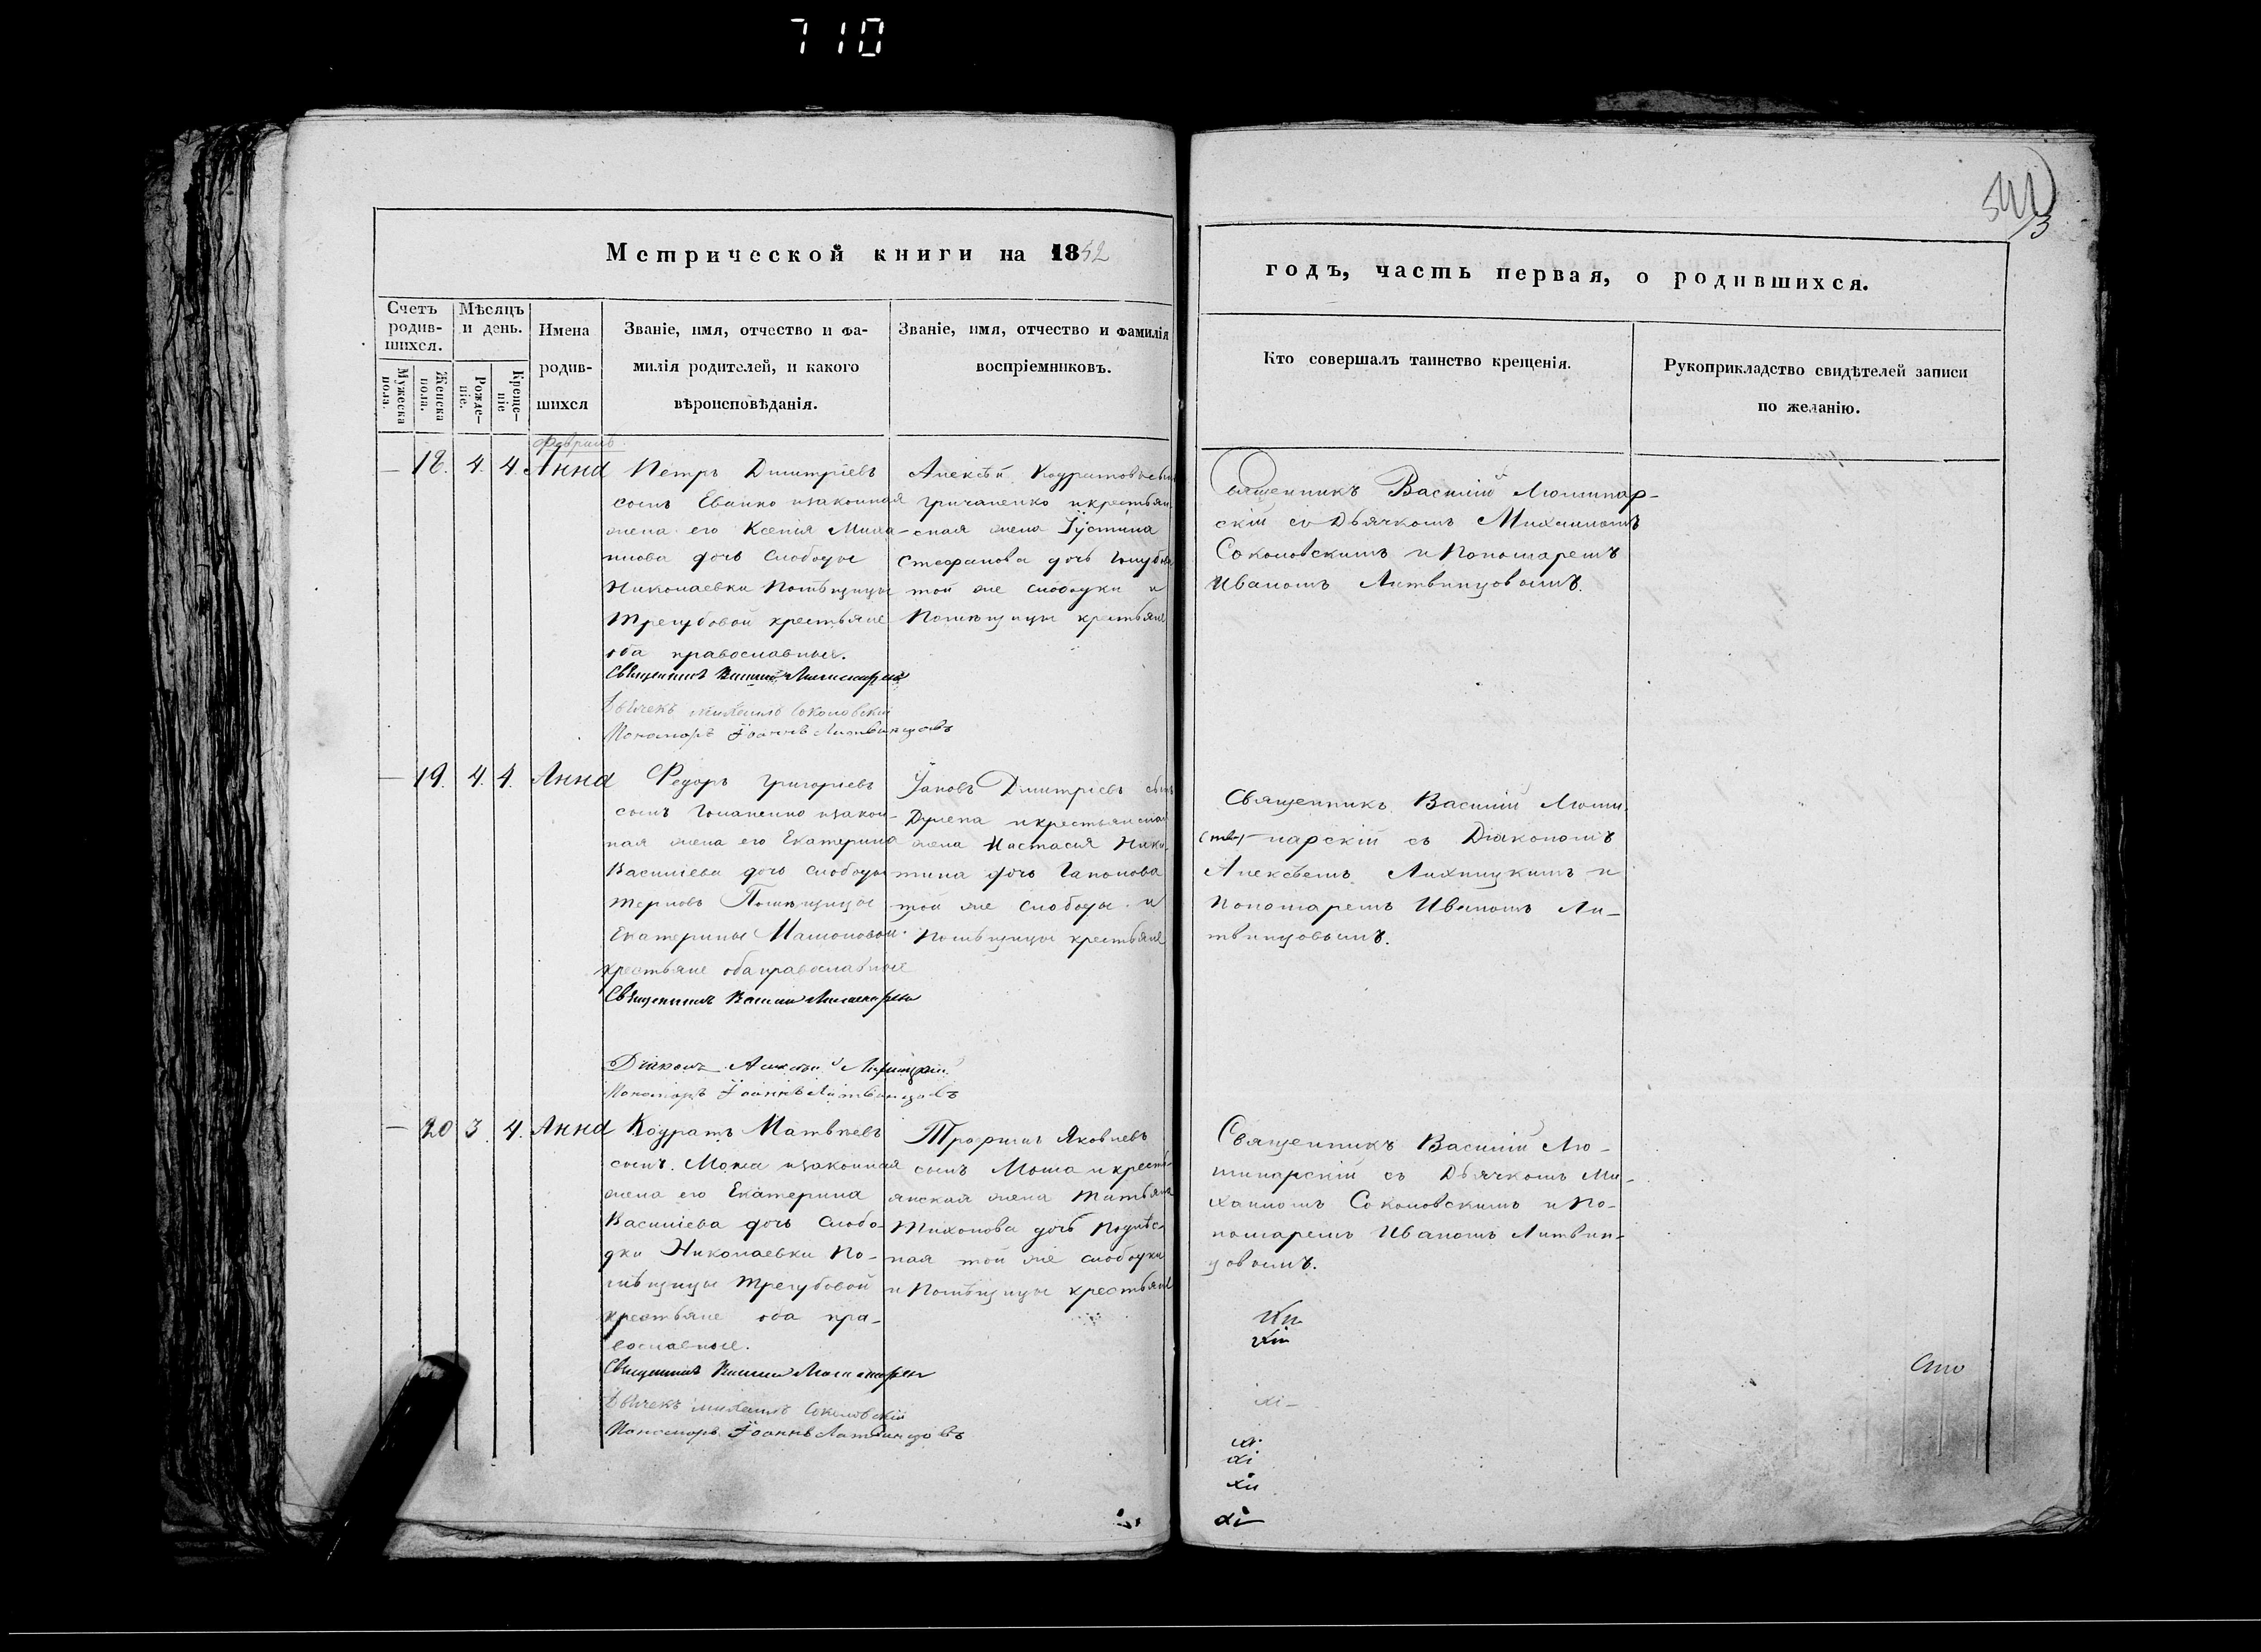 710
541
13
Метрической книги на 1852
годъ, часть первая, о родившихся.
Счетъ родив-
шихся.
Мужеска пола.
Женска пола.
Мѣсяцъ и день.
Рожде-
ніе.
Креще-
ніе
Имена
родив-
шихся
Званіе, имя, отчество и фа-
милія родителей, и какого
вѣроисповѣданія.
Званіе, имя, отчество и фамилія
воспріемниковъ.
Кто совершалъ таинство крещенія.
Рукоприкладство свидѣтелей записи
по желанію.
Февраль.
— 18. 4. 4. Анна
Петръ Димитріевъ
сынъ Евапко изаконная
жена его Ксенія
дочь слободы
Николаевки Помѣщицы
Трегубовой крестьяне
оба православные.
Священникъ Василій
Дьячекъ Михаилъ Соколовскій
Пономарь Іоаннъ Литвинцовъ
Алексѣй Кодратовъ сынъ
Гричаненко икрестьян-
ская жена Іустина
Стефанова дочь
той же слободки и
Помѣщицы крестьяне
Священникъ Василій Люминар-
скій съ Дьячкомъ Михаиломъ
Соколовскимъ и Пономаремъ
Иваномъ Литвинцовымъ.
— 19. 4. 4. Анна
Федоръ Григоріевъ
сынъ изакон-
ная жена его Екатерина
Василіева дочь слободы
Терновъ Помѣщицы
Екатерины
крестьяне оба православные
Священникъ Василій
Діаконъ Алексѣй Лихницкій
Пономарь Іоаннъ Литвинцовъ
Іаковъ Димитріевъ сынъ
икрестьянская
жена Настасія Ники-
тина дочь Гапонова
той же слободы и
Помѣщицы крестьяне
Священникъ Василій Люми-
нарскій съ Діакономъ
Алексѣемъ Лихницкимъ и
Пономаремъ Иваномъ Ли-
твинцовымъ.
— 20 3. 4. Анна
Кодратъ Матвѣевъ
сынъ изаконная
жена его Екатерина
Василіева дочь слобо-
дки Николаевки По-
мѣщицы Трегубовой
крестьяне оба пра-
вославные.
Священникъ Василій
Дьячекъ Михаилъ Соколовскій
Пономарь Іоаннъ Литвинцовъ
Трофимъ Яковлевъ
сынъ икресть-
янская жена Татьяна
Тихонова дочь
той же слободки
и Помѣщицы крестьяне
Священникъ Василій Лю-
минарскій съ Дьячкомъ Ми-
хаиломъ Соколовскимъ и По-
номаремъ Иваномъ Литвин-
цовымъ.